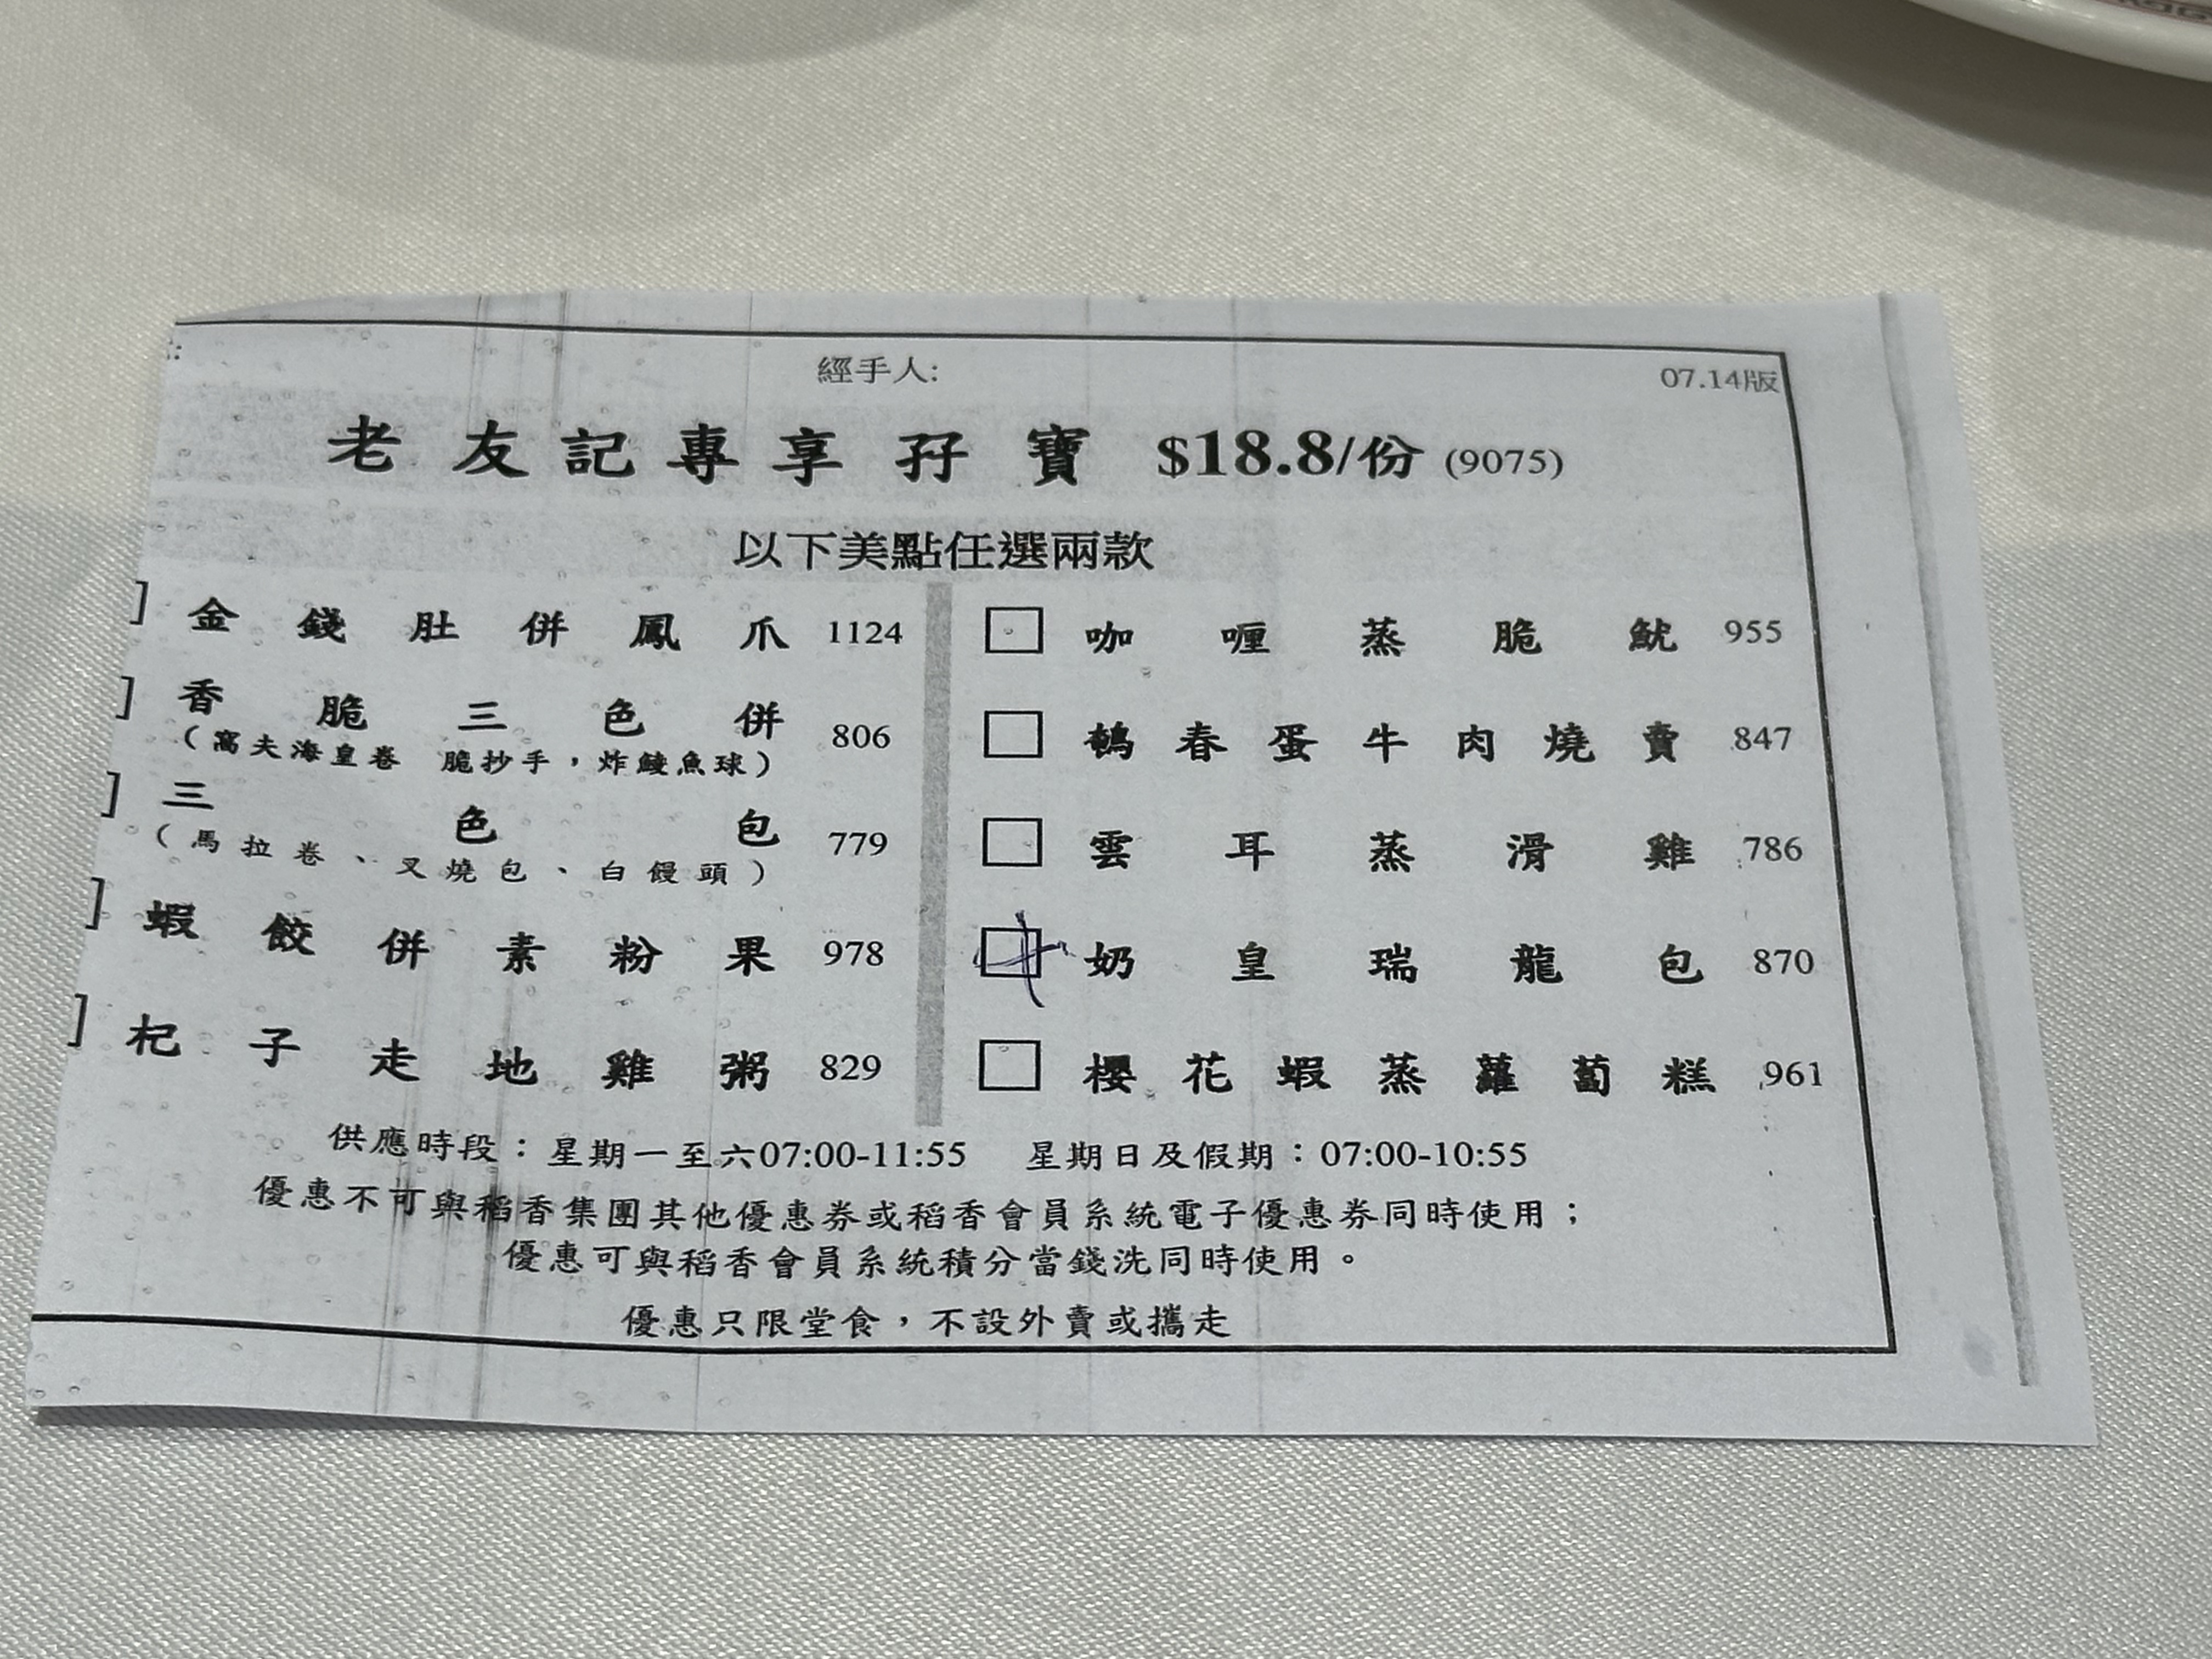 經手人:
07.14版
老友記專享孖寶 $18.8/份 (9075)
以下美點任選兩款
金錢肚併鳳爪 1124
香脆三色併 806
(窩夫海皇卷 脆抄手，炸鯪魚球)
三色包 779
(馬拉卷、叉燒包、白饅頭)
蝦餃併素粉果 978
杞子走地雞粥 829
咖喱蒸脆魷 955
鵪春蛋牛肉燒賣 847
雲耳蒸滑雞 786
奶皇瑞龍包 870
櫻花蝦蒸蘿蔔糕 961
供應時段：星期一至六07:00-11:55 星期日及假期：07:00-10:55
優惠不可與稻香集團其他優惠券或稻香會員系統電子優惠券同時使用；
優惠可與稻香會員系統積分當錢洗同時使用。
優惠只限堂食，不設外賣或攜走